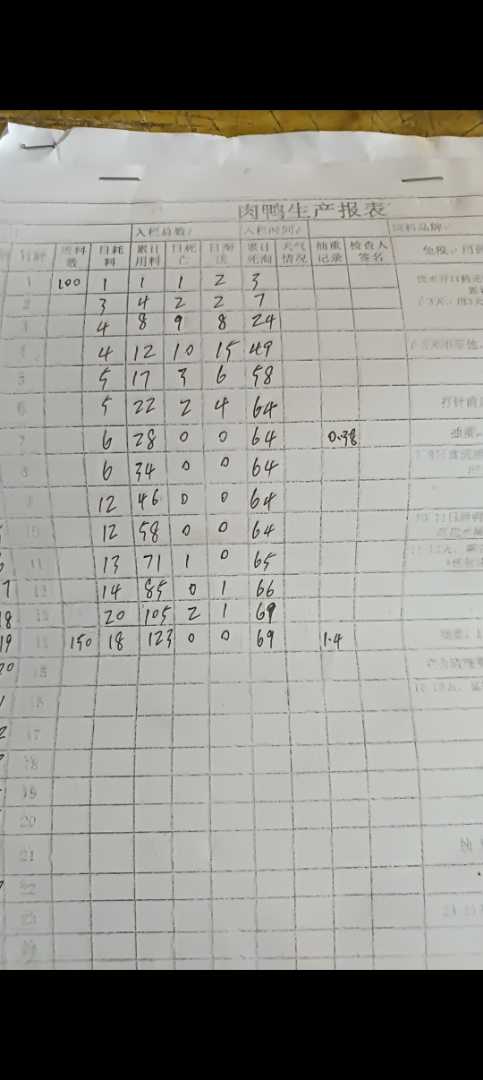 肉鸭生产报表
入栏总数： 入栏时间： 饲料品牌：
日龄 进料数 日耗料 累日用料 日死亡 日淘汰 累日死淘 天气情况 抽重记录 检查人签名
1 100 1 1 1 2 3
2 3 4 2 2 7
3 4 8 9 8 24
4 4 12 10 15 49
5 5 17 3 6 58
6 5 22 2 4 64
7 6 28 0 0 64 0.38
8 6 34 0 0 64
9 12 46 0 0 64
10 12 58 0 0 64
11 13 71 1 0 65
7 12 14 85 0 1 66
18 13 20 105 2 1 69
19 14 150 18 123 0 0 69 1.4
20 15
16
17
18
19
20
21
22
23